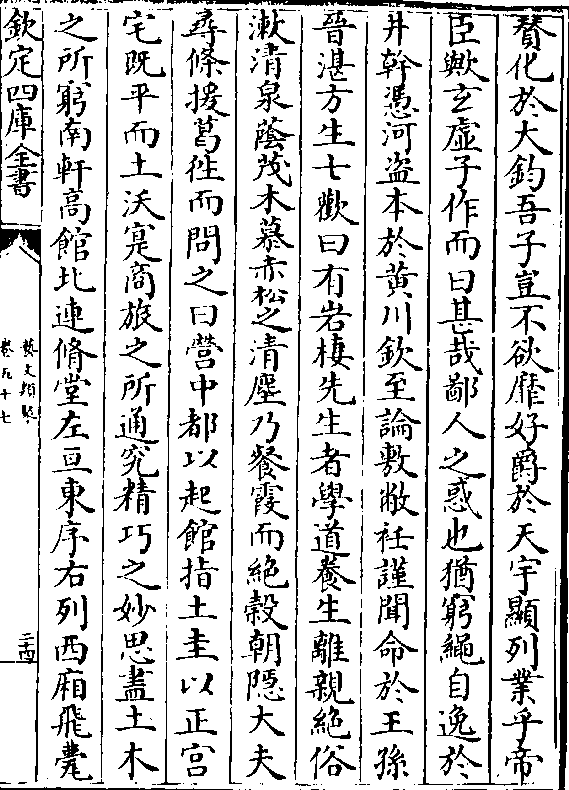 賛化於大鈞吾子豈不欲靡好爵於天宇顯列業乎帝
臣歟玄虚子作而曰甚哉鄙人之惑也猶窮繩自逸於
井幹憑河盗本於黄川欽至論敷敝衽謹聞命於王孫
晉湛方生七歡曰有岩棲先生者學道養生離親絶俗
漱清泉蔭茂木慕赤松之清塵乃餐霞而絶榖朝隠大夫
尋條援葛徃而問之曰營中都以起館指土圭以正宫
宅既平而土沃寔商旅之所通究精巧之妙思盡土木
之所窮南軒高館北連脩堂左亘東序右列西廂飛甍
欽定四庫全書
藝文類聚
卷五十七
二十四